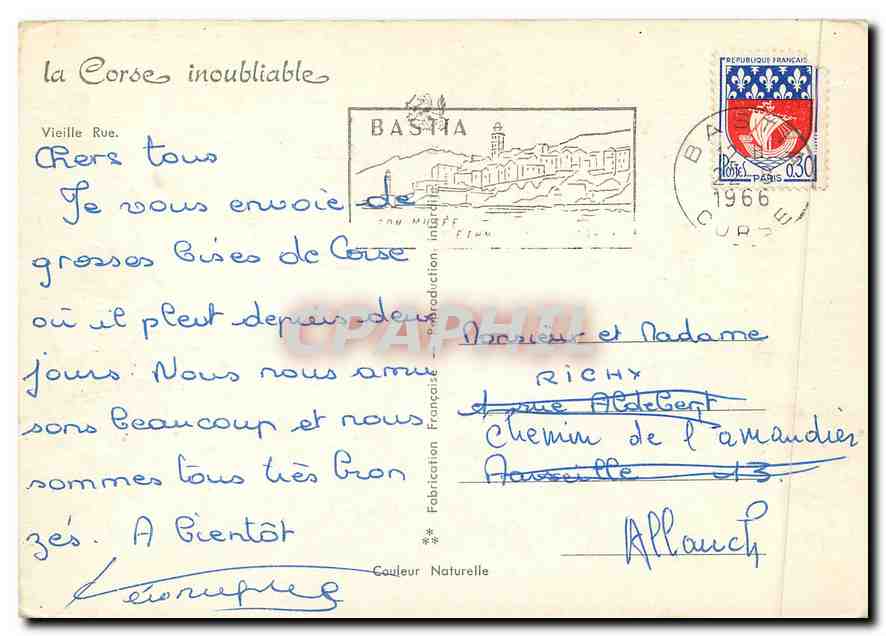 la Corse inoubliable
Vieille Rue.
Chers tous
Je vous envoie de
grosses bises de Corse
où il pleut depuis deux
jours. Nous nous amu
sons beaucoup et nous
sommes tous très bron
zés. A bientôt
Véronique
BASTIA
SON MUSÉE
REPUBLIQUE FRANÇAISE
POSTES 0,30
PARIS
BASTIA
22
1966
CORSE
Fabrication Française - Reproduction interdite
CPAPHIL
Monsieur et Madame
RICHY
1 rue Aldebert
Chemin de l'amandier
Marseille 13
Allauch
Couleur Naturelle